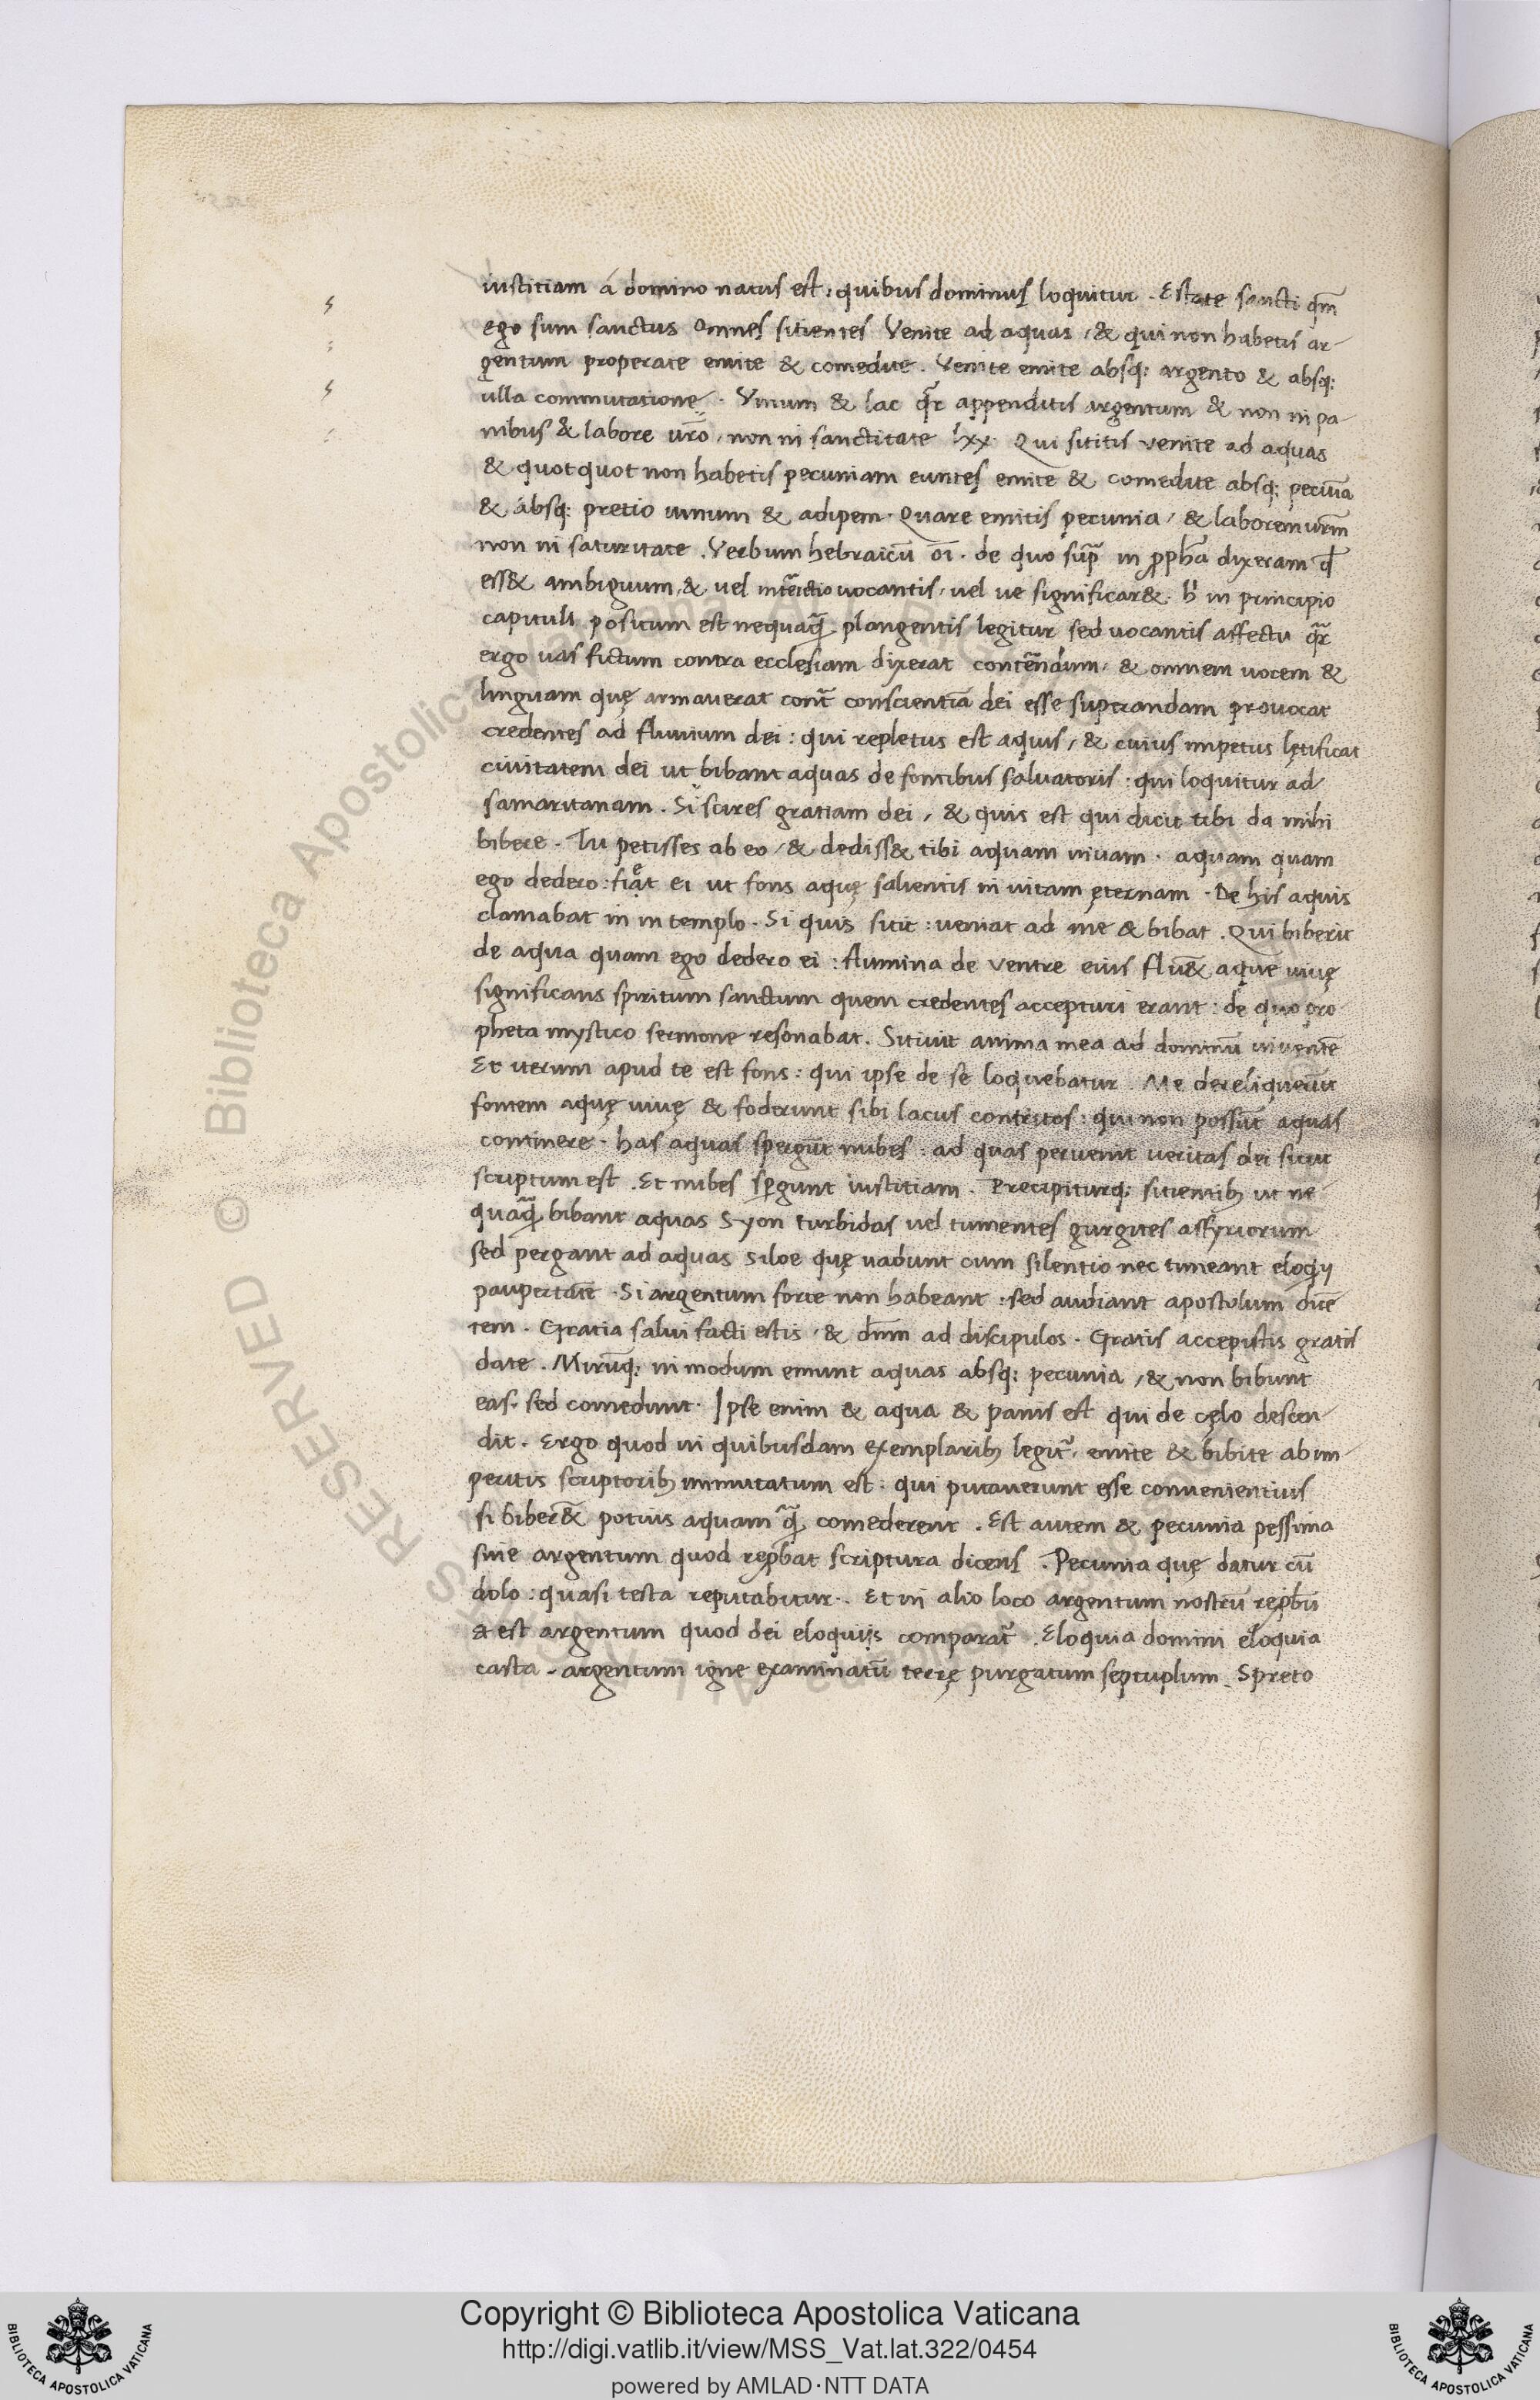 iustitiam á domino natus est: quibus dominus loquitur. Estate sancti qm̄
ego sum sanctus Omnes sitientes Venite ad aquas, & qui non habetis ar-
gentum properate emite & comedite. Venite emite absq; argento & absq;
ulla commutatione. Vinum & lac q̄r appenditis argentum & non in pa-
nibus & labore vr̄o, non in sanctitate lxx Qui sititis venite ad aquas
& quotquot non habetis pecuniam euntes emite & comedite absq; pecūia
& absq; pretio uinum & adipem. Quare emitis pecunia, & laborem urm̄
non in saturitate. Verbum hebraicū oi. de quo sup̄ in pph̄a dixeram
ess& ambiguum, & uel vocantis, uel ue significar& in principio
capituli positum est nequaq̄ plangentis legitur sed uocantis affectu q̄r
ergo uas fictum contra ecclesiam dixerat contēndum, & omnem uocem &
linguam quę armauerat cont̄ conscientiā dei esse superandam prouocat
credentes ad fluuium dei: qui repletus est aquis, & cuius impetus lętificat
ciuitatem dei ut bibant aquas de fontibus saluatoris: qui loquitur ad
samaritanam. Si scires gratiam dei, & quis est qui dicit tibi da mihi
bibere. Tu petisses ab eo, & dediss& tibi aquam uiuam. aquam quam
ego dedero: fiat ei ut fons aquę salientis in uitam ęternam. De his aquis
clamabat in in templo. Si quis sitit: ueniat ad me & bibat. Qui biberit
de aqua quam ego dedero ei: flumina de ventre eius flu& aque uiuę
significans spiritum sanctum quem credentes accepturi erant: de quo pro
pheta mystico sermone resonabat. Sitiuit anima mea ad dominū uiuentē
Et uerum apud te est fons: qui ipse de se loquebatur. Me dereliquerūt
fontem aquę uiuę & foderunt sibi lacus contritos: qui non possūt aquas
continere. has aquas spergūt nubes: ad quas peruenit ueritas dei sicut
scriptum est. Et nubes spergunt iustitiam. Precipiturq; sitientib; ut ne
quaq̄ bibant aquas Syon turbidas uel tumentes gurgites assyriorum
sed pergant ad aquas siloe quę uadunt cum silentio nec timeant eloqij
paupertatē. Si argentum forte non habeant: sed audiant apostolum dicē
tem. Gratia salui facti estis, & dnm̄ ad discipulos. Gratis accepistis gratis
date. Mirūq; in modum emunt aquas absq; pecunia, & non bibunt
eas. sed comedunt. Ipse enim & aqua & panis est qui de cęlo descen
dit. Ergo quod in quibusdam exemplarib; legit̄, emite & bibite ab im-
peritis scriptorib; immutatum est: qui putauerunt esse conuenientius
si biber& potius aquam q̄ comederent. Est autem & pecunia pessima
siue argentum quod rep̄bat scriptura dicens. Pecunia quę datur cū
dolo: quasi testa reputabitur. Et in alio loco argentum nostrū rep̄bū
& est argentum quod dei eloquijs comparat̄. Eloquia domini eloquia
casta. argentum igne examinatū terrę purgatum septuplum. Spreto
Copyright © Biblioteca Apostolica Vaticana
http://digi.vatlib.it/view/MSS_Vat.lat.322/0454
powered by AMLAD·NTT DATA